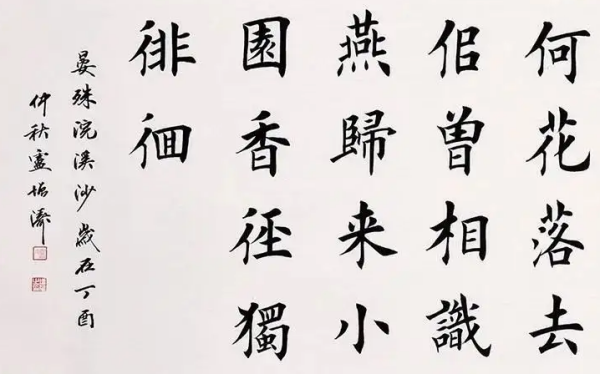 何花落去
佀曾相識
燕歸来小
園香径獨
徘徊
晏殊浣溪沙歲在丁酉
仲秋盧